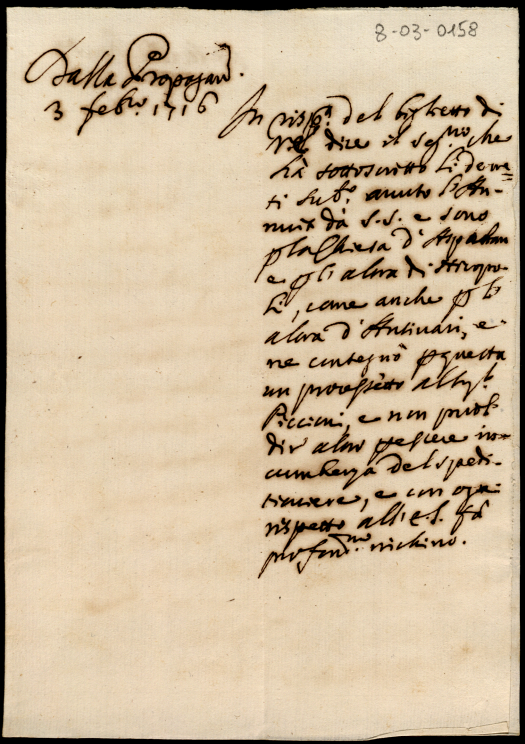 8-03-0158
Dalla Propagan.
3 febro. 1716
In risp. del biglietto di
dire il segno. che
hà sottoscritto li decre=
ti sub. avuto l'An-
nuit dà S.S. e sono
p la Chiesa d'Aspahan
e p l'altra di Hierapo-
li, come anche p l'
altra d'Antivari, e
ne consegnò p questa
un processetto al
Piccini, e non può
dir altro p essere in-
cumbenza del spedi-
tioniere, e con ogni
rispetto all' fà
profondmo. inchino.